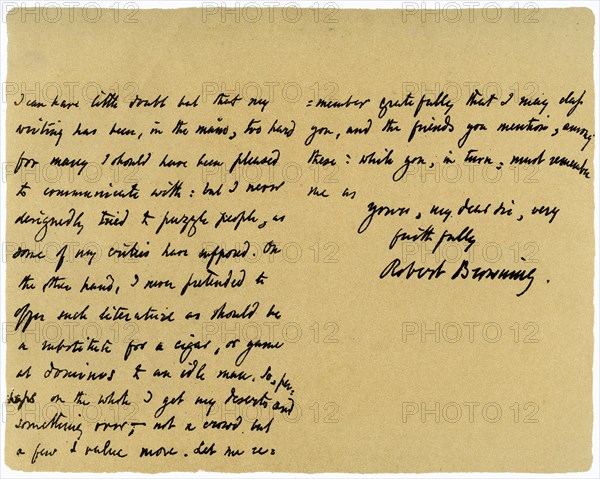 I can have little doubt but that my
writing has been, in the main, too hard
for many I should have been pleased
to communicate with: but I never
designedly tried to puzzle people, as
some of my critics have supposed. On
the other hand, I never pretended to
offer such literature as should be
a substitute for a cigar, or game
at dominos to an idle man. So, per=
haps on the whole I get my deserts and
something over, — not a crowd but
a few I value more. Let me re=
=member gratefully that I may class
you, and the friends you mention, among
these: while you, in turn, must remember
me as
yours, my dear sir, very
faithfully
Robert Browning.
PHOTO 12